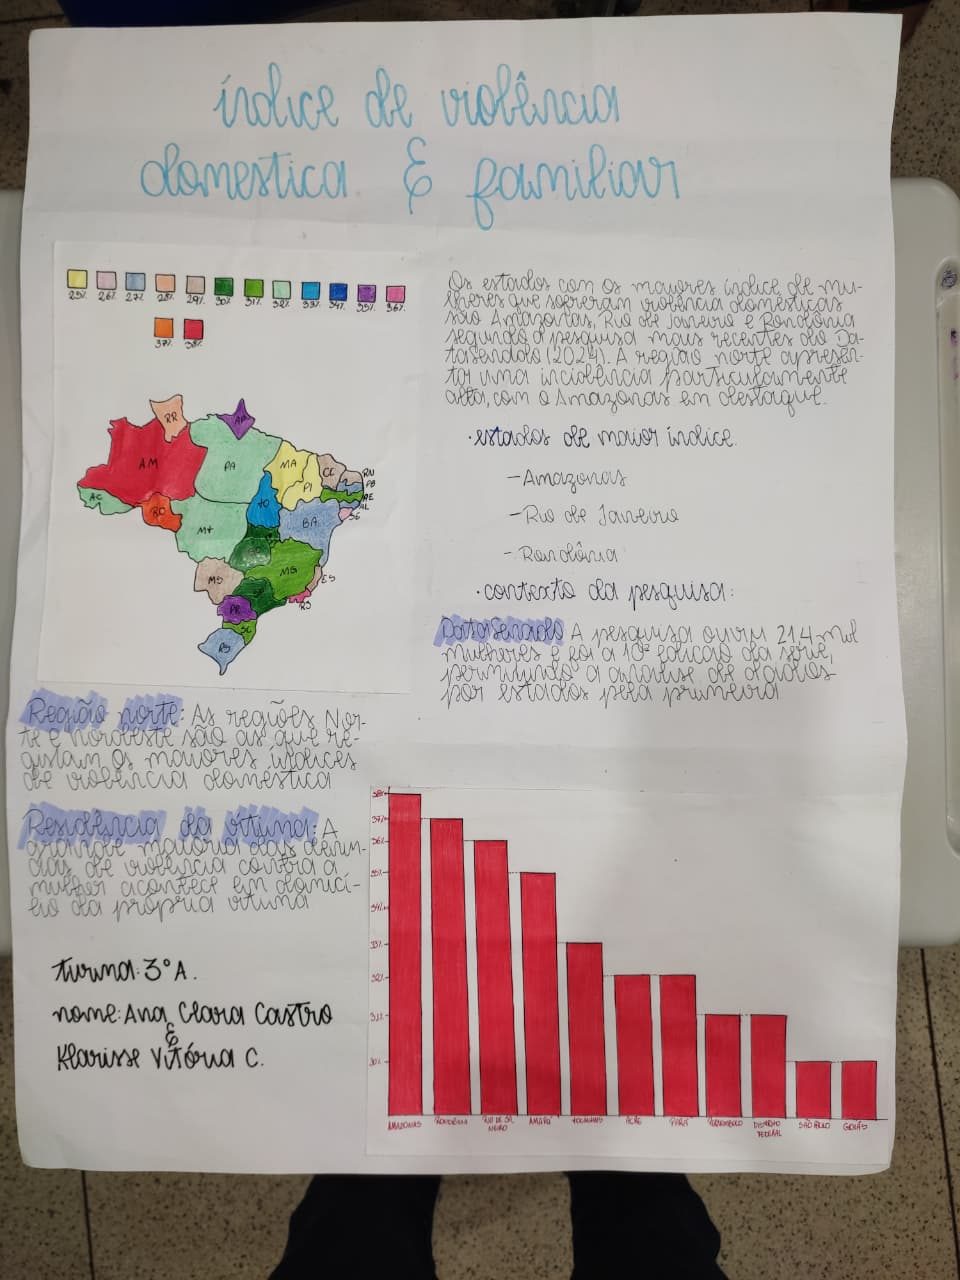 índice de violência
domestica & familiar
25% 26% 27% 28% 29% 30% 31% 32% 33% 34% 35% 36%
37% 38%
Os estados com os maiores índice de mu-
lheres que sofreram violência domésticas
são Amazonas, Rio de Janeiro e Rondônia
segundo a pesquisa mais recentes do Da-
taSenado (2024). A região norte apresen-
ta uma incidência particularmente
alta, com o Amazonas em destaque.
• estados de maior índice.
- Amazonas
- Rio de Janeiro
- Rondônia
• contexto da pesquisa:
DataSenado A pesquisa ouviu 21,4 mil
mulheres e foi a 10ª edição da série,
permitindo a análise de dados
por estados pela primeira
RR AP
AM PA MA CE RN
PI PB
AC PE
RO TO AL
MT BA SE
GO
MS MG ES
SP RJ
PR
SC
RS
Região norte: As regiões Nor-
te e nordeste são as que re-
gistam os maiores índices
de violência doméstica
Residência da vítima: A
grande maioria das denún-
cias de violência contra a
mulher acontece em domicí-
lio da própria vítima
turma: 3º A.
nome: Ana Clara Castro
&
Klarisse Vitória C.
38%
37%
36%
35%
34%
33%
32%
31%
30%
AMAZONAS RONDÔNIA RIO DE JA AMAPÁ TOCANTINS ACRE PARÁ PERNAMBUCO DISTRITO SÃO PAULO GOIÁS
NEIRO FEDERAL